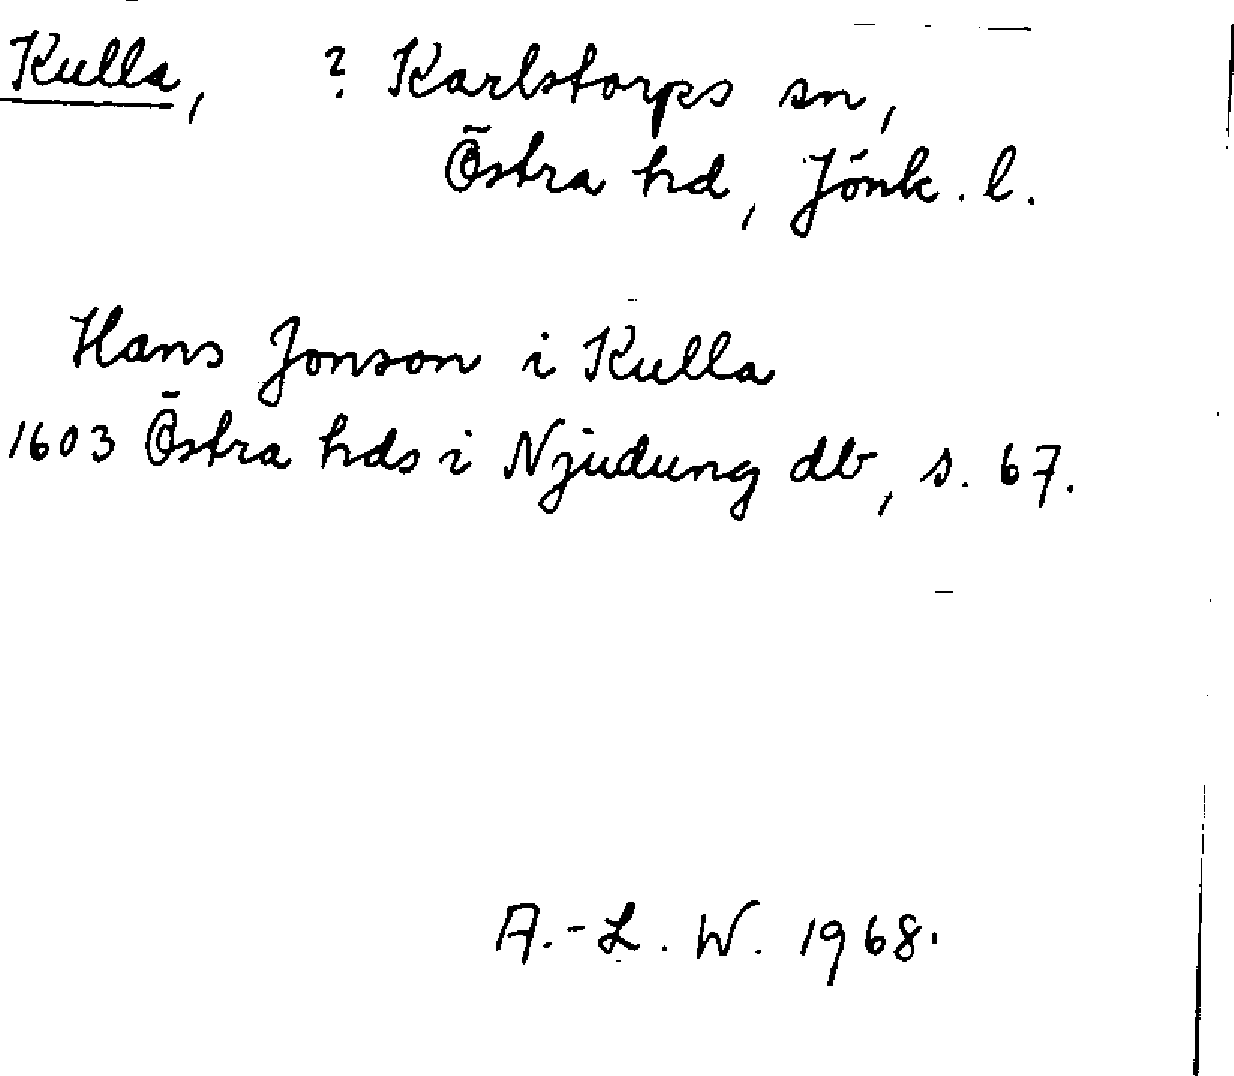 Kulla, ? Karlstorps sn,
Östra hd, Jönk. l.
Hans Jonson i Kulla
1603 Östra hds i Njudung db, s. 67.
A.-L. W. 1968.